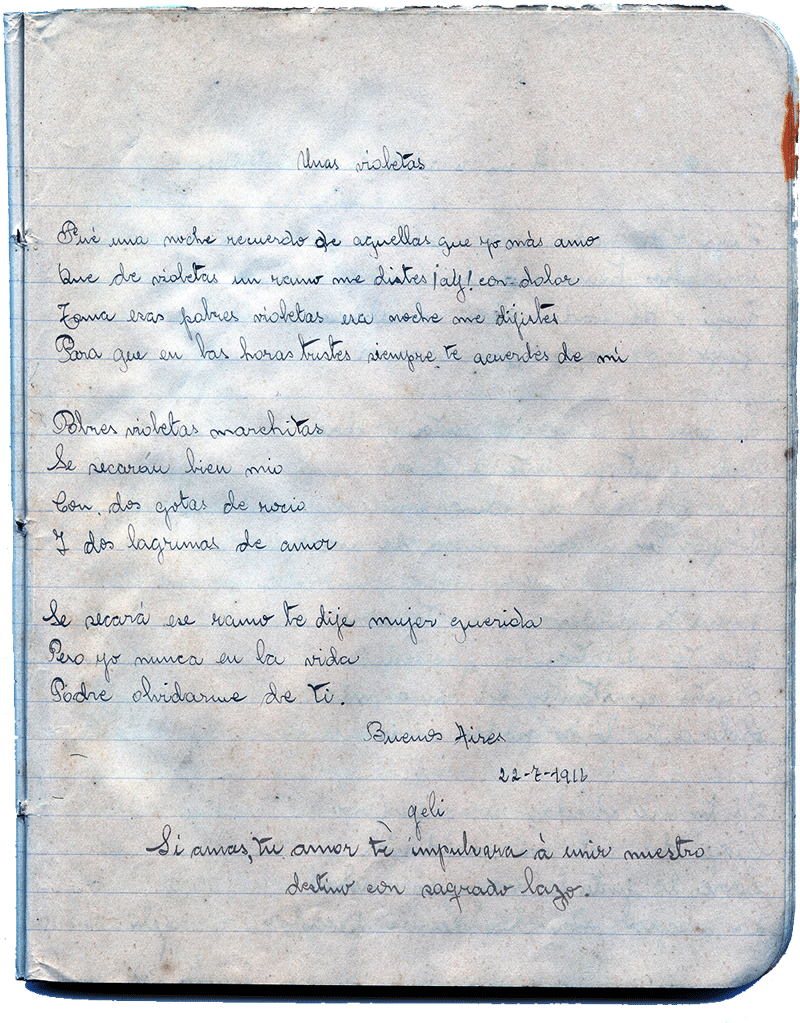 Unas violetas
Fué una noche recuerdo de aquellas que yo más amo
Que de violetas un ramo me distes ¡ay! con dolor
Toma esas pobres violetas esa noche me dijistes
Para que en las horas tristes siempre te acuerdes de mi
Pobres violetas marchitas
Se secarán bien mio
Con dos gotas de rocio
Y dos lagrimas de amor
Se secará ese ramo te dije mujer querida
Pero yo nunca en la vida
Podre olvidarme de ti.
Buenos Aires
22-7-1911
geli
Si amas, tu amor te impulsara á unir nuestro
destino con sagrado lazo.